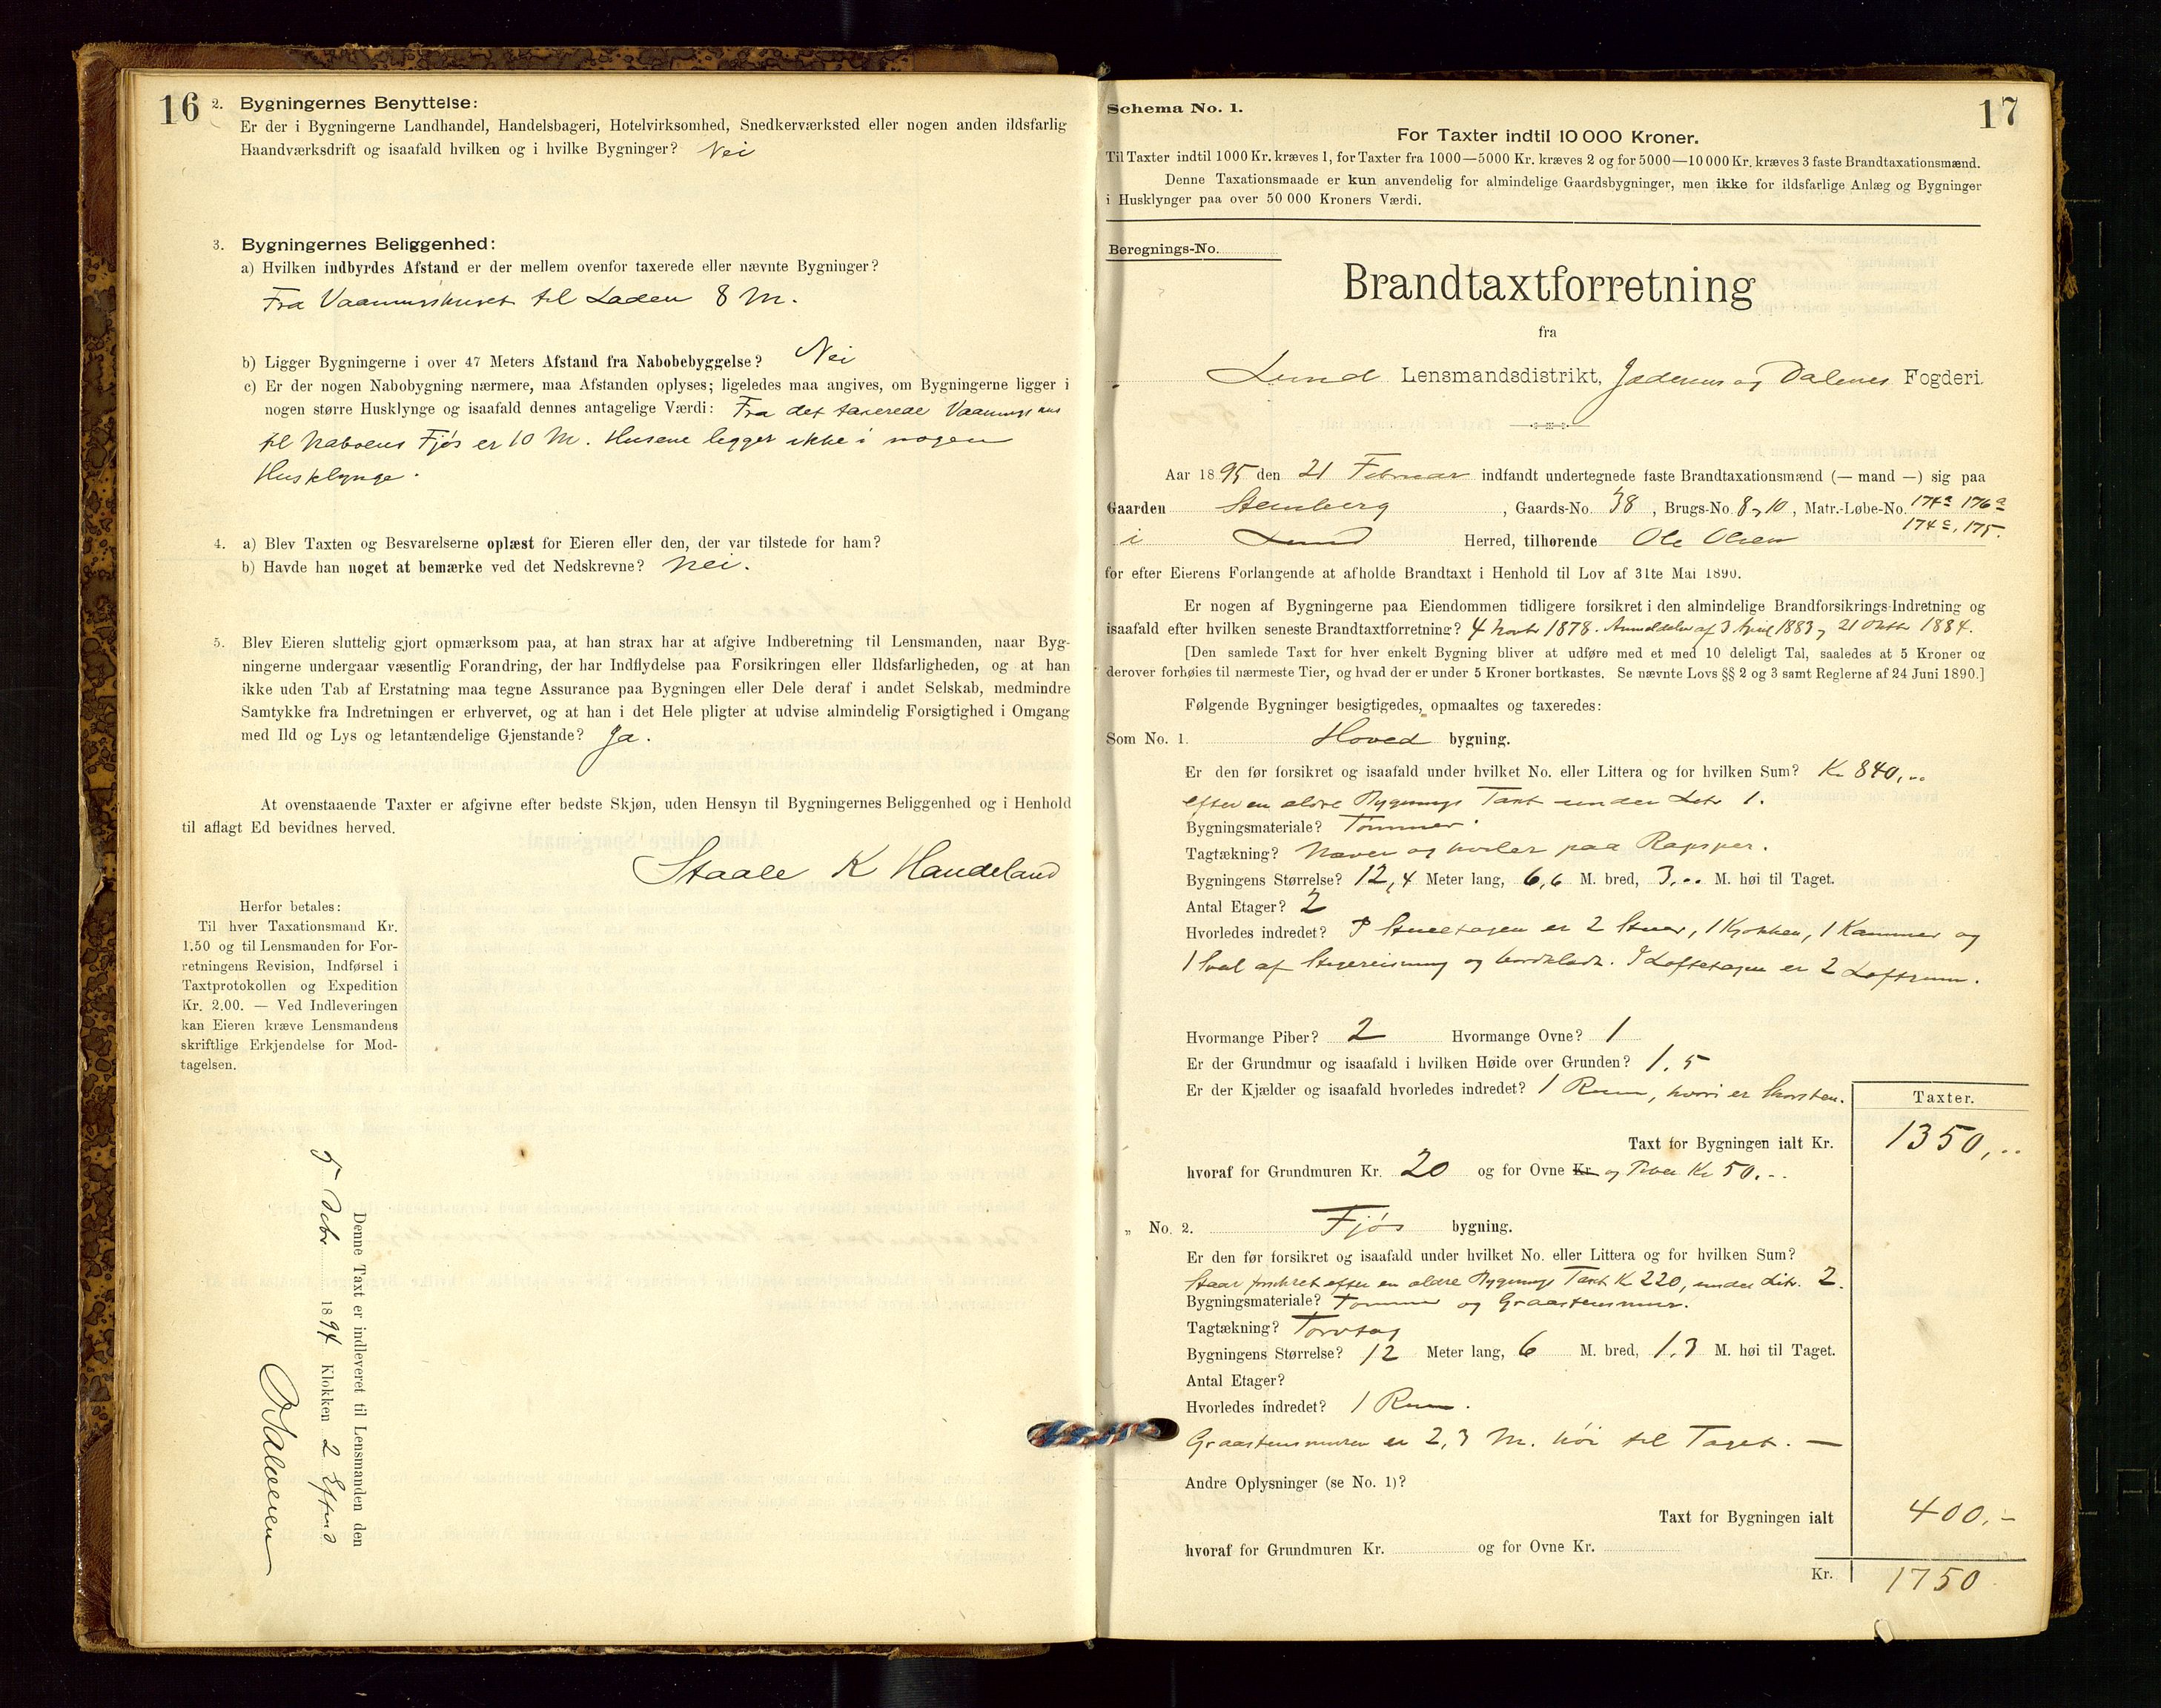 16
2. Bygningernes Benyttelse:
Er der i Bygningerne Landhandel, Handelsbageri, Hotelvirksomhed, Snedkerværksted eller nogen anden ildsfarlig
Haandværksdrift og isaafald hvilken og i hvilke Bygninger? Nei
3. Bygningernes Beliggenhed:
a) Hvilken indbyrdes Afstand er der mellem ovenfor taxerede eller nævnte Bygninger?
Fra Vaaningshuset til Laden 8 M.
b) Ligger Bygningerne i over 47 Meters Afstand fra Nabobebyggelse? Nei
c) Er der nogen Nabobygning nærmere, maa Afstanden oplyses; ligeledes maa angives, om Bygningerne ligger i
nogen større Husklynge og isaafald dennes antagelige Værdi: Fra det taxerede Vaaningshus
til Naboens Fjøs er 10 M. Husene ligger ikke i nogen
Husklynge.
4. a) Blev Taxten og Besvarelserne oplæst for Eieren eller den, der var tilstede for ham?
b) Havde han noget at bemærke ved det Nedskrevne? Nei.
5. Blev Eieren sluttelig gjort opmærksom paa, at han strax har at afgive Indberetning til Lensmanden, naar Byg-
ningerne undergaar væsentlig Forandring, der har Indflydelse paa Forsikringen eller Ildsfarligheden, og at han
ikke uden Tab af Erstatning maa tegne Assurance paa Bygningen eller Dele deraf i andet Selskab, medmindre
Samtykke fra Indretningen er erhvervet, og at han i det Hele pligter at udvise almindelig Forsigtighed i Omgang
med Ild og Lys og letantændelige Gjenstande? Ja.
At ovenstaaende Taxter er afgivne efter bedste Skjøn, uden Hensyn til Bygningernes Beliggenhed og i Henhold
til aflagt Ed bevidnes herved.
Staale K Handeland
Herfor betales:
Til hver Taxationsmand Kr.
1.50 og til Lensmanden for For-
retningens Revision, Indførsel i
Taxtprotokollen og Expedition
Kr. 2.00. — Ved Indleveringen
kan Eieren kræve Lensmandens
skriftlige Erkjendelse for Mod-
tagelsen.
Denne Taxt er indleveret til Lensmanden den
5 Debr. 1894 Klokken 2 Eftmd
17
Schema No. 1.
For Taxter indtil 10 000 Kroner.
Til Taxter indtil 1000 Kr. kræves 1, for Taxter fra 1000—5000 Kr. kræves 2 og for 5000—10 000 Kr. kræves 3 faste Brandtaxationsmænd.
Denne Taxationsmaade er kun anvendelig for almindelige Gaardsbygninger, men ikke for ildsfarlige Anlæg og Bygninger
i Husklynger paa over 50 000 Kroners Værdi.
Beregnings-No.
Brandtaxtforretning
fra
Lund Lensmandsdistrikt, Jæderens og Dalenes Fogderi.
Aar 1895 den 21 Februar indfandt undertegnede faste Brandtaxationsmænd (— mand —) sig paa
Gaarden Stenberg, Gaards-No. 38, Brugs-No. 8, 10, Matr.-Løbe-No. 174a 176a
174c, 175.
i Lund Herred, tilhørende Ole Olsen
for efter Eierens Forlangende at afholde Brandtaxt i Henhold til Lov af 31te Mai 1890.
Er nogen af Bygningerne paa Eiendommen tidligere forsikret i den almindelige Brandforsikrings-Indretning og
isaafald efter hvilken seneste Brandtaxtforretning? 4 Novbr 1878. Anmeldelse af 3 April 1883, 21 Oktbr 1884.
[Den samlede Taxt for hver enkelt Bygning bliver at udføre med et med 10 deleligt Tal, saaledes at 5 Kroner og
derover forhøies til nærmeste Tier, og hvad der er under 5 Kroner bortkastes. Se nævnte Lovs §§ 2 og 3 samt Reglerne af 24 Juni 1890.]
Følgende Bygninger besigtigedes, opmaaltes og taxeredes:
Som No. 1. Hoved bygning.
Er den før forsikret og isaafald under hvilket No. eller Littera og for hvilken Sum? Kr 840,..
efter en ældre Bygnings Taxt under Litr 1.
Bygningsmateriale? Tømmer.
Tagtækning? Næver og heller paa Ragsper.
Bygningens Størrelse? 12,4 Meter lang, 6,6 M. bred, 3,.. M. høi til Taget.
Antal Etager? 2
Hvorledes indredet? I Stueetagen er 2 Stuer, 1 Kjøkken, 1 Kammer og
1 Sval af Stegereisning og bordklædt. I Loftetagen er 2 Loftrum.
Hvormange Piber? 2 Hvormange Ovne? 1
Er der Grundmur og isaafald i hvilken Høide over Grunden? 1,5
Er der Kjælder og isaafald hvorledes indredet? 1 Rum, hvori er Skorsten.
Taxter.
Taxt for Bygningen ialt Kr. 1350,..
hvoraf for Grundmuren Kr. 20 og for Ovne Kr. og Piber Kr 50.--
" No. 2. Fjøs bygning.
Er den før forsikret og isaafald under hvilket No. eller Littera og for hvilken Sum?
Staar forsikret efter en ældre Bygnings Taxt Kr 220, under Litr. 2.
Bygningsmateriale? Tømmer og Graastensmur.
Tagtækning? Torvtag
Bygningens Størrelse? 12 Meter lang, 6 M. bred, 1.3 M. høi til Taget.
Antal Etager?
Hvorledes indredet? 1 Rum.
Graastensmuren er 2,3 M. høi til Taget. —
Andre Oplysninger (se No. 1)?
Taxt for Bygningen ialt 400.-
hvoraf for Grundmuren Kr. og for Ovne Kr.
Kr. 1750